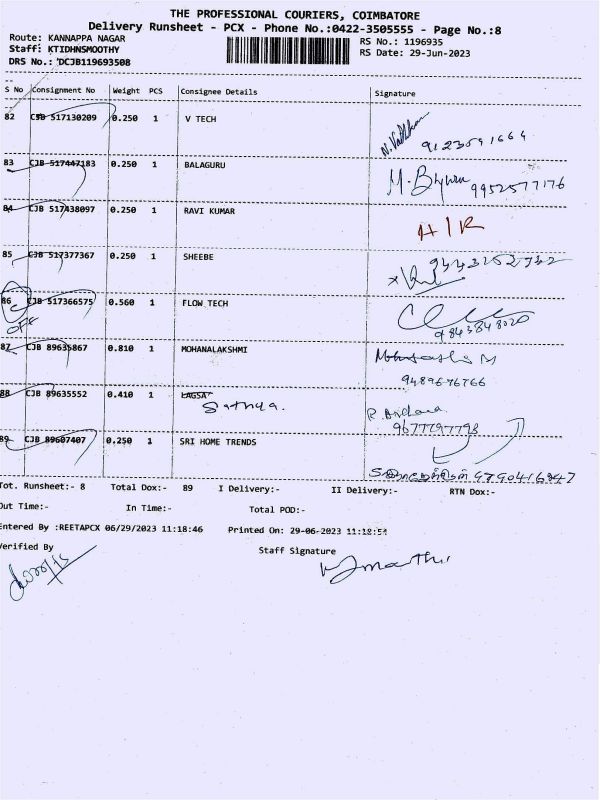 THE PROFESSIONAL COURIERS, COIMBATORE
Delivery Runsheet - PCX - Phone No.:0422-3505555 - Page No.:8
Route: KANNAPPA NAGAR RS No.: 1196935
Staff: KTIDHNSMOOTHY RS Date: 29-Jun-2023
DRS No.: DCJB119693508
S No Consignment No Weight PCS Consignee Details Signature
82 CJB 517130209 0.250 1 V TECH
9123591664
83 CJB 517447183 0.250 1 BALAGURU M. 9952577176
84 CJB 517438097 0.250 1 RAVI KUMAR
85 CJB 517377367 0.250 1 SHEEBE
86 CJB 517366575 0.560 1 FLOW TECH
OFF 9843848020
87 CJB 89635867 0.810 1 MOHANALAKSHMI
9489676766
88 CJB 89635552 0.410 1 LAGSA
Sathya. 9677797798
89 CJB 89607407 0.250 1 SRI HOME TRENDS
Tot. Runsheet:- 8 Total Dox:- 89 I Delivery:- II Delivery:- RTN Dox:-
Out Time:- In Time:- Total POD:-
Entered By :REETAPCX 06/29/2023 11:18:46 Printed On: 29-06-2023 11:18:54
Verified By Staff Signature